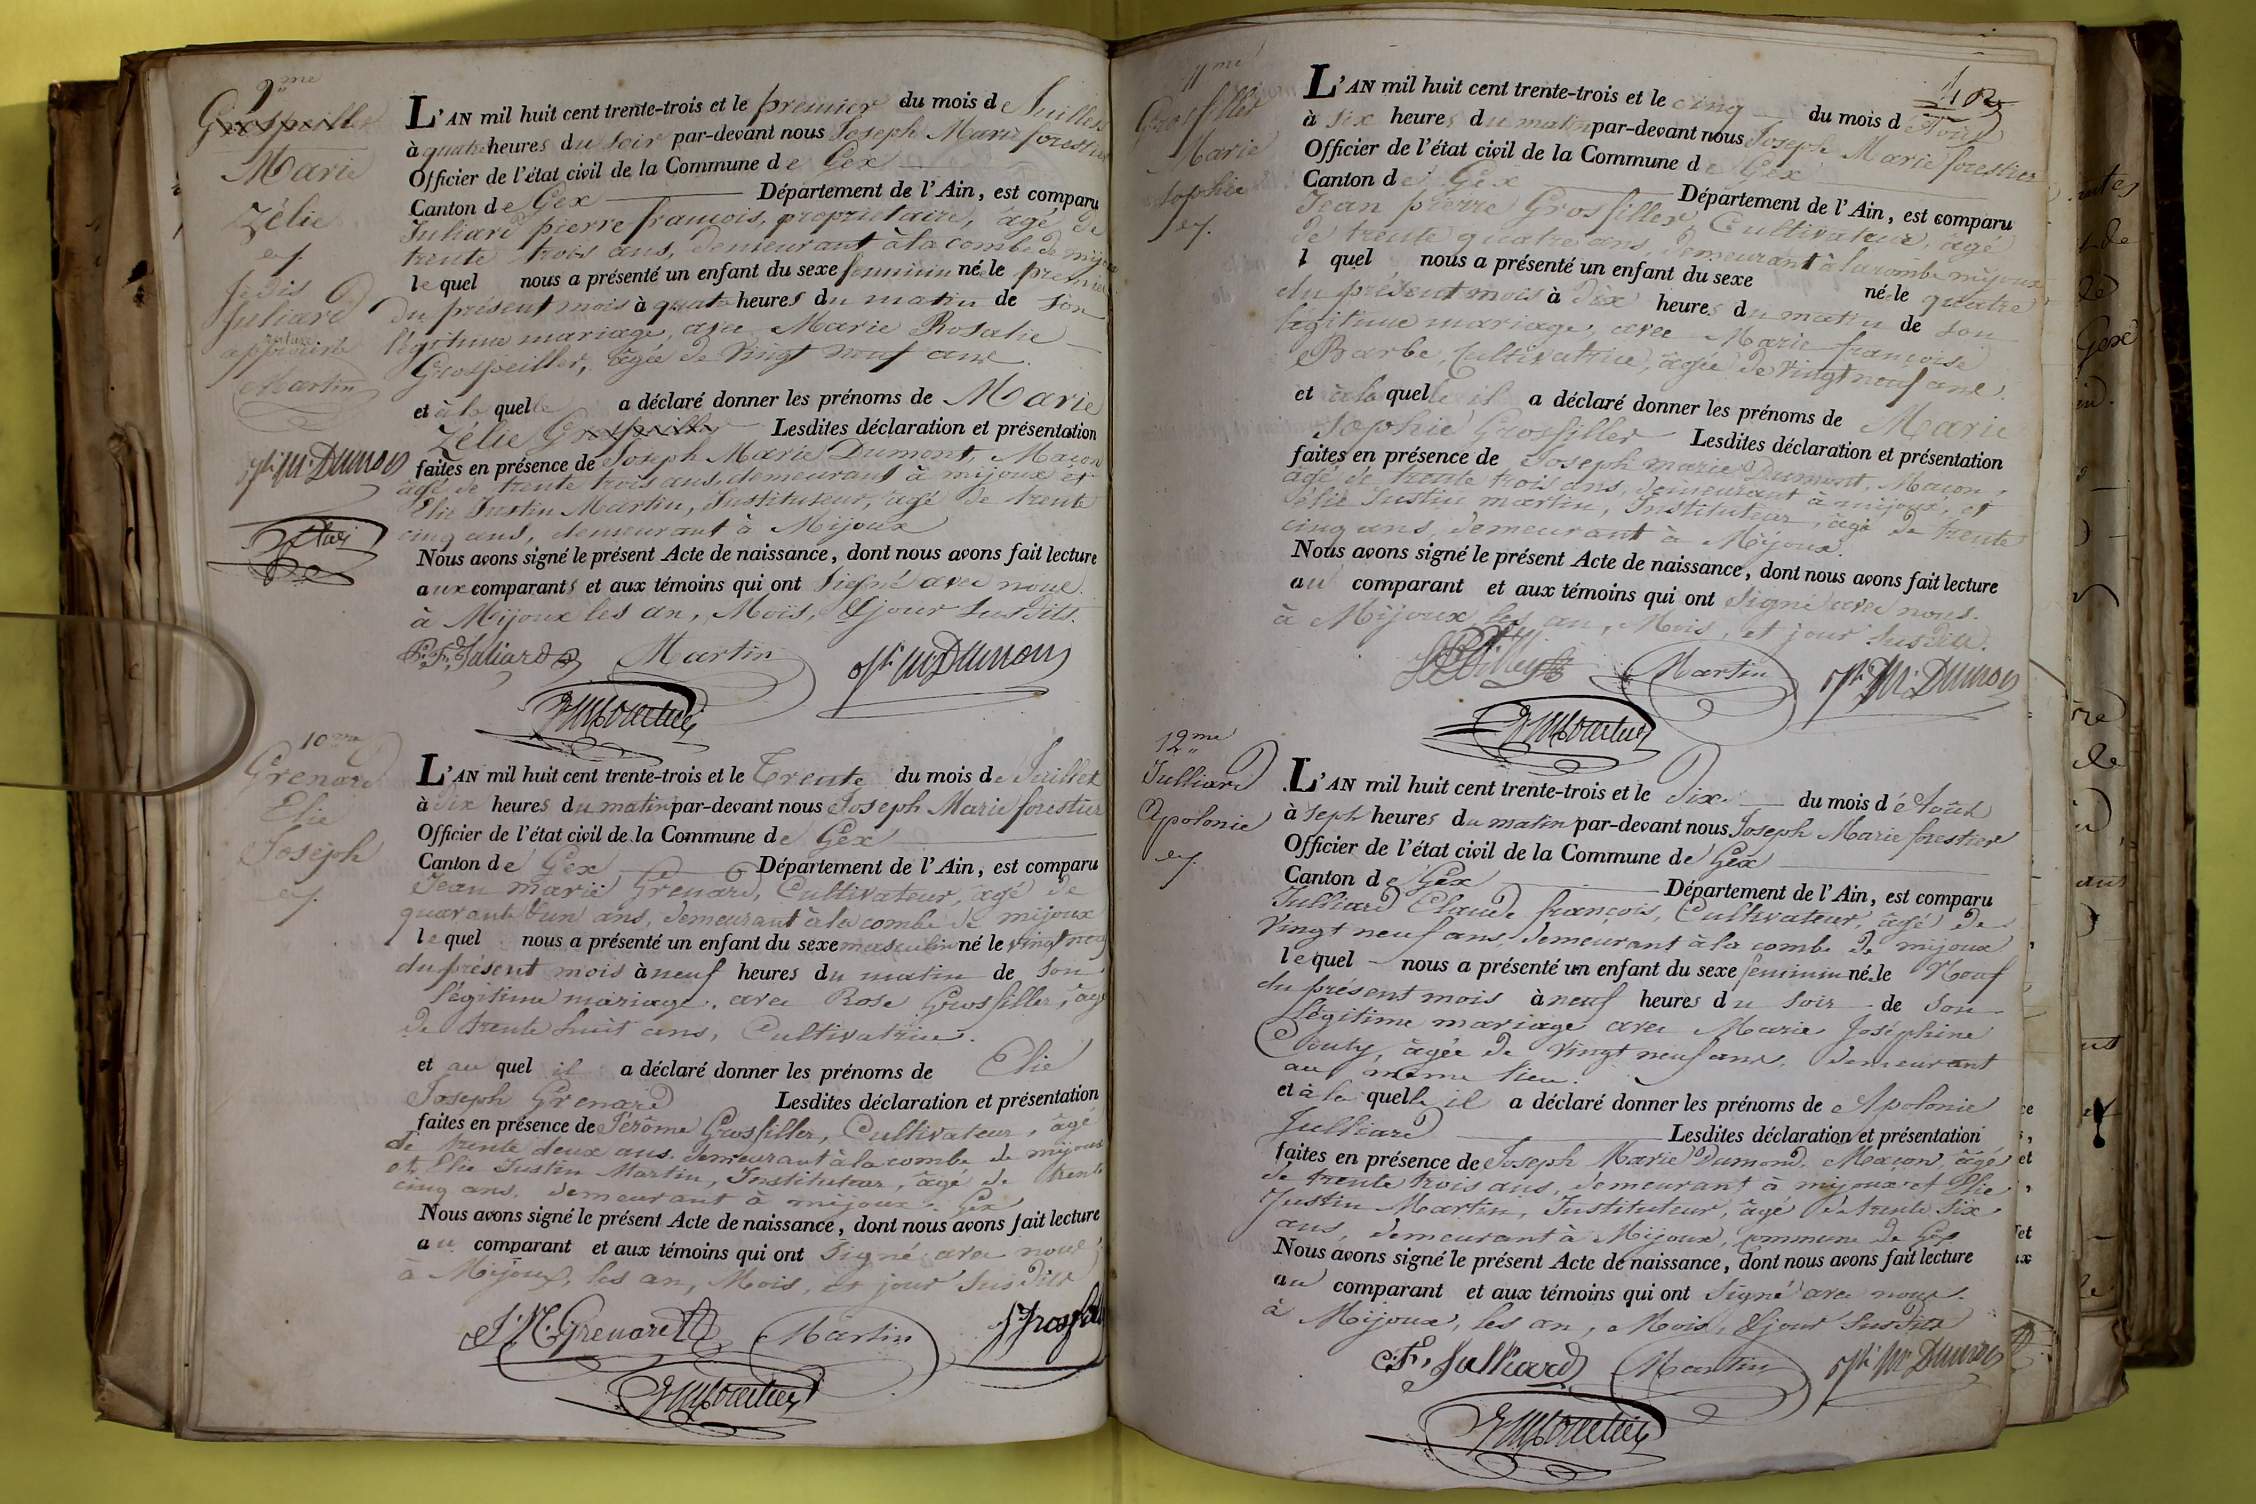 9me
Grosfiller
Marie
Zélie
ef.
je dis
Juliard
rature
approuvée
Martin
Jh M. Dumont
L'AN mil huit cent trente-trois et le premier du mois de Juillet
à quatre heures du soir par-devant nous Joseph Marie forestier
Officier de l'état civil de la Commune de Gex
Canton de Gex Département de l'Ain, est comparu
Juliard pierre françois, propriétaire, âgé de
trente trois ans, demeurant à la combe de mijoux
lequel nous a présenté un enfant du sexe feminin né le premier
du présent mois à quatre heures du matin de son
légitime mariage, avec Marie Rosalie
Grosfeiller, âgée de vingt neuf ans.
et à la quelle a déclaré donner les prénoms de Marie
Zélie Lesdites déclaration et présentation
faites en présence de Joseph Marie Dumont, Maçon
âgé de trente trois ans, demeurant à mijoux et
Elie Justin Martin, Instituteur, âgé de trente
cinq ans, demeurant à Mijoux
Nous avons signé le présent Acte de naissance, dont nous avons fait lecture
aux comparants et aux témoins qui ont signé avec nous.
à Mijoux les an, Mois, & jour susdits.
P. F. Juliard Martin Jh M. Dumont
JM forestier
10me
Grenard
Elie
Joseph
ef.
L'AN mil huit cent trente-trois et le Trente du mois de Juillet
à dix heures du matin par-devant nous Joseph Marie forestier
Officier de l'état civil de la Commune de Gex
Canton de Gex Département de l'Ain, est comparu
Jean marie Grenard, Cultivateur, âgé de
quarante un ans, demeurant à la combe de mijoux
lequel nous a présenté un enfant du sexe masculin né le vingt neuf
du présent mois à neuf heures du matin de son
légitime mariage, avec Rose Grosfiller, âgée
de trente huit ans, Cultivatrice.
et au quel il a déclaré donner les prénoms de Elie
Joseph Grenard Lesdites déclaration et présentation
faites en présence de Jérôme Grosfiller, Cultivateur, âgé
de trente deux ans. demeurant à la combe de mijoux
et Elie Justin Martin, Instituteur, âgé de trente
cinq ans, demeurant à mijoux. Gex
Nous avons signé le présent Acte de naissance, dont nous avons fait lecture
au comparant et aux témoins qui ont signé avec nous
à Mijoux, les an, Mois, et jour susdits
J. M. Grenard Martin
JM forestier
11me
Grosfiller
Marie
Sophie
ef.
L'AN mil huit cent trente-trois et le cinq du mois d'Août
à six heures du matin par-devant nous Joseph Marie forestier
Officier de l'état civil de la Commune de Gex
Canton de Gex Département de l'Ain, est comparu
Jean pierre Grosfiller, Cultivateur, âgé
de trente quatre ans, demeurant à la combe mijoux
l quel nous a présenté un enfant du sexe né le quatre
du présent mois à dix heures du matin de son
légitime mariage, avec Marie françoise
Barbe, Cultivatrice, âgée de vingt neuf ans.
et à la quelle il a déclaré donner les prénoms de Marie
Sophie Grosfiller Lesdites déclaration et présentation
faites en présence de Joseph marie Dumont, Maçon,
âgé de trente trois ans, demeurant à mijoux, et
Elie Justin martin, Instituteur, âgé de trente
cinq ans, demeurant à Mijoux.
Nous avons signé le présent Acte de naissance, dont nous avons fait lecture
au comparant et aux témoins qui ont signé avec nous.
à Mijoux, les an, Mois, et jour susdits.
Martin Jh M. Dumont
JM forestier
12me
Julliard
Apolonie
ef.
L'AN mil huit cent trente-trois et le Dix du mois d'Août
à sept heures du matin par-devant nous Joseph Marie forestier
Officier de l'état civil de la Commune de Gex
Canton de Gex Département de l'Ain, est comparu
Julliard Claude françois, Cultivateur, âgé de
vingt neuf ans, demeurant à la combe de mijoux
lequel nous a présenté un enfant du sexe feminin né le Neuf
du présent mois à neuf heures du soir de son
Légitime mariage avec Marie Joséphine
âgée de vingt neuf ans, demeurant
au même lieu.
et à la quelle il a déclaré donner les prénoms de Apolonie
Julliard Lesdites déclaration et présentation
faites en présence de Joseph Marie Dumond, Maçon, âgé
de trente trois ans, demeurant à mijoux et Elie
Justin Martin, Instituteur, âgé de trente six
ans, demeurant à Mijoux, commune de Gex
Nous avons signé le présent Acte de naissance, dont nous avons fait lecture
au comparant et aux témoins qui ont signé avec nous.
à Mijoux, les an, Mois, & jour susdits
C. F. Julliard Martin Jh M. Dumont
JM forestier